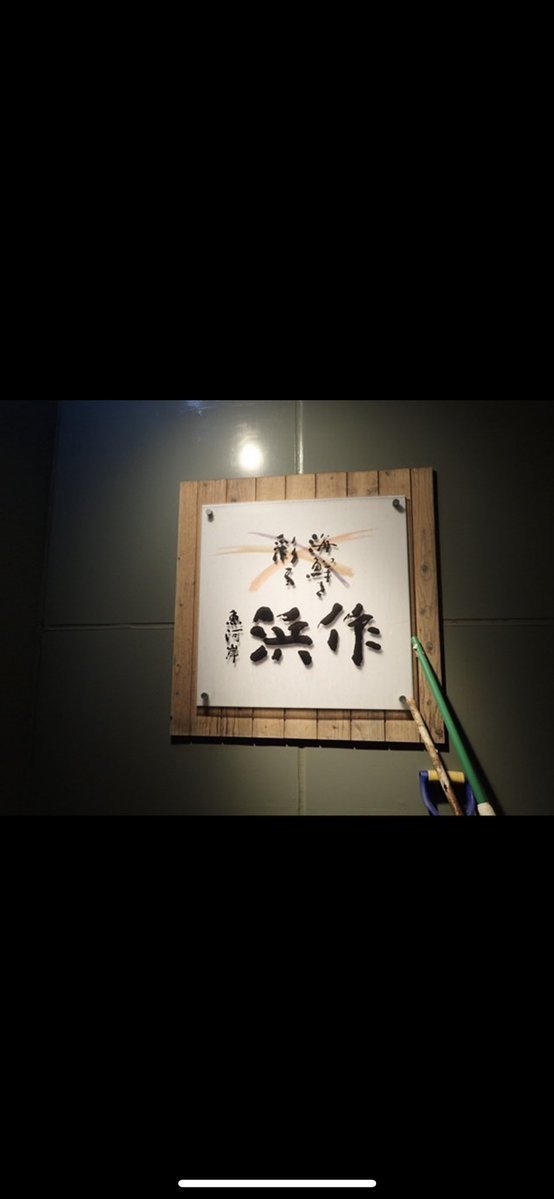 海鮮
彩
魚河岸
浜作